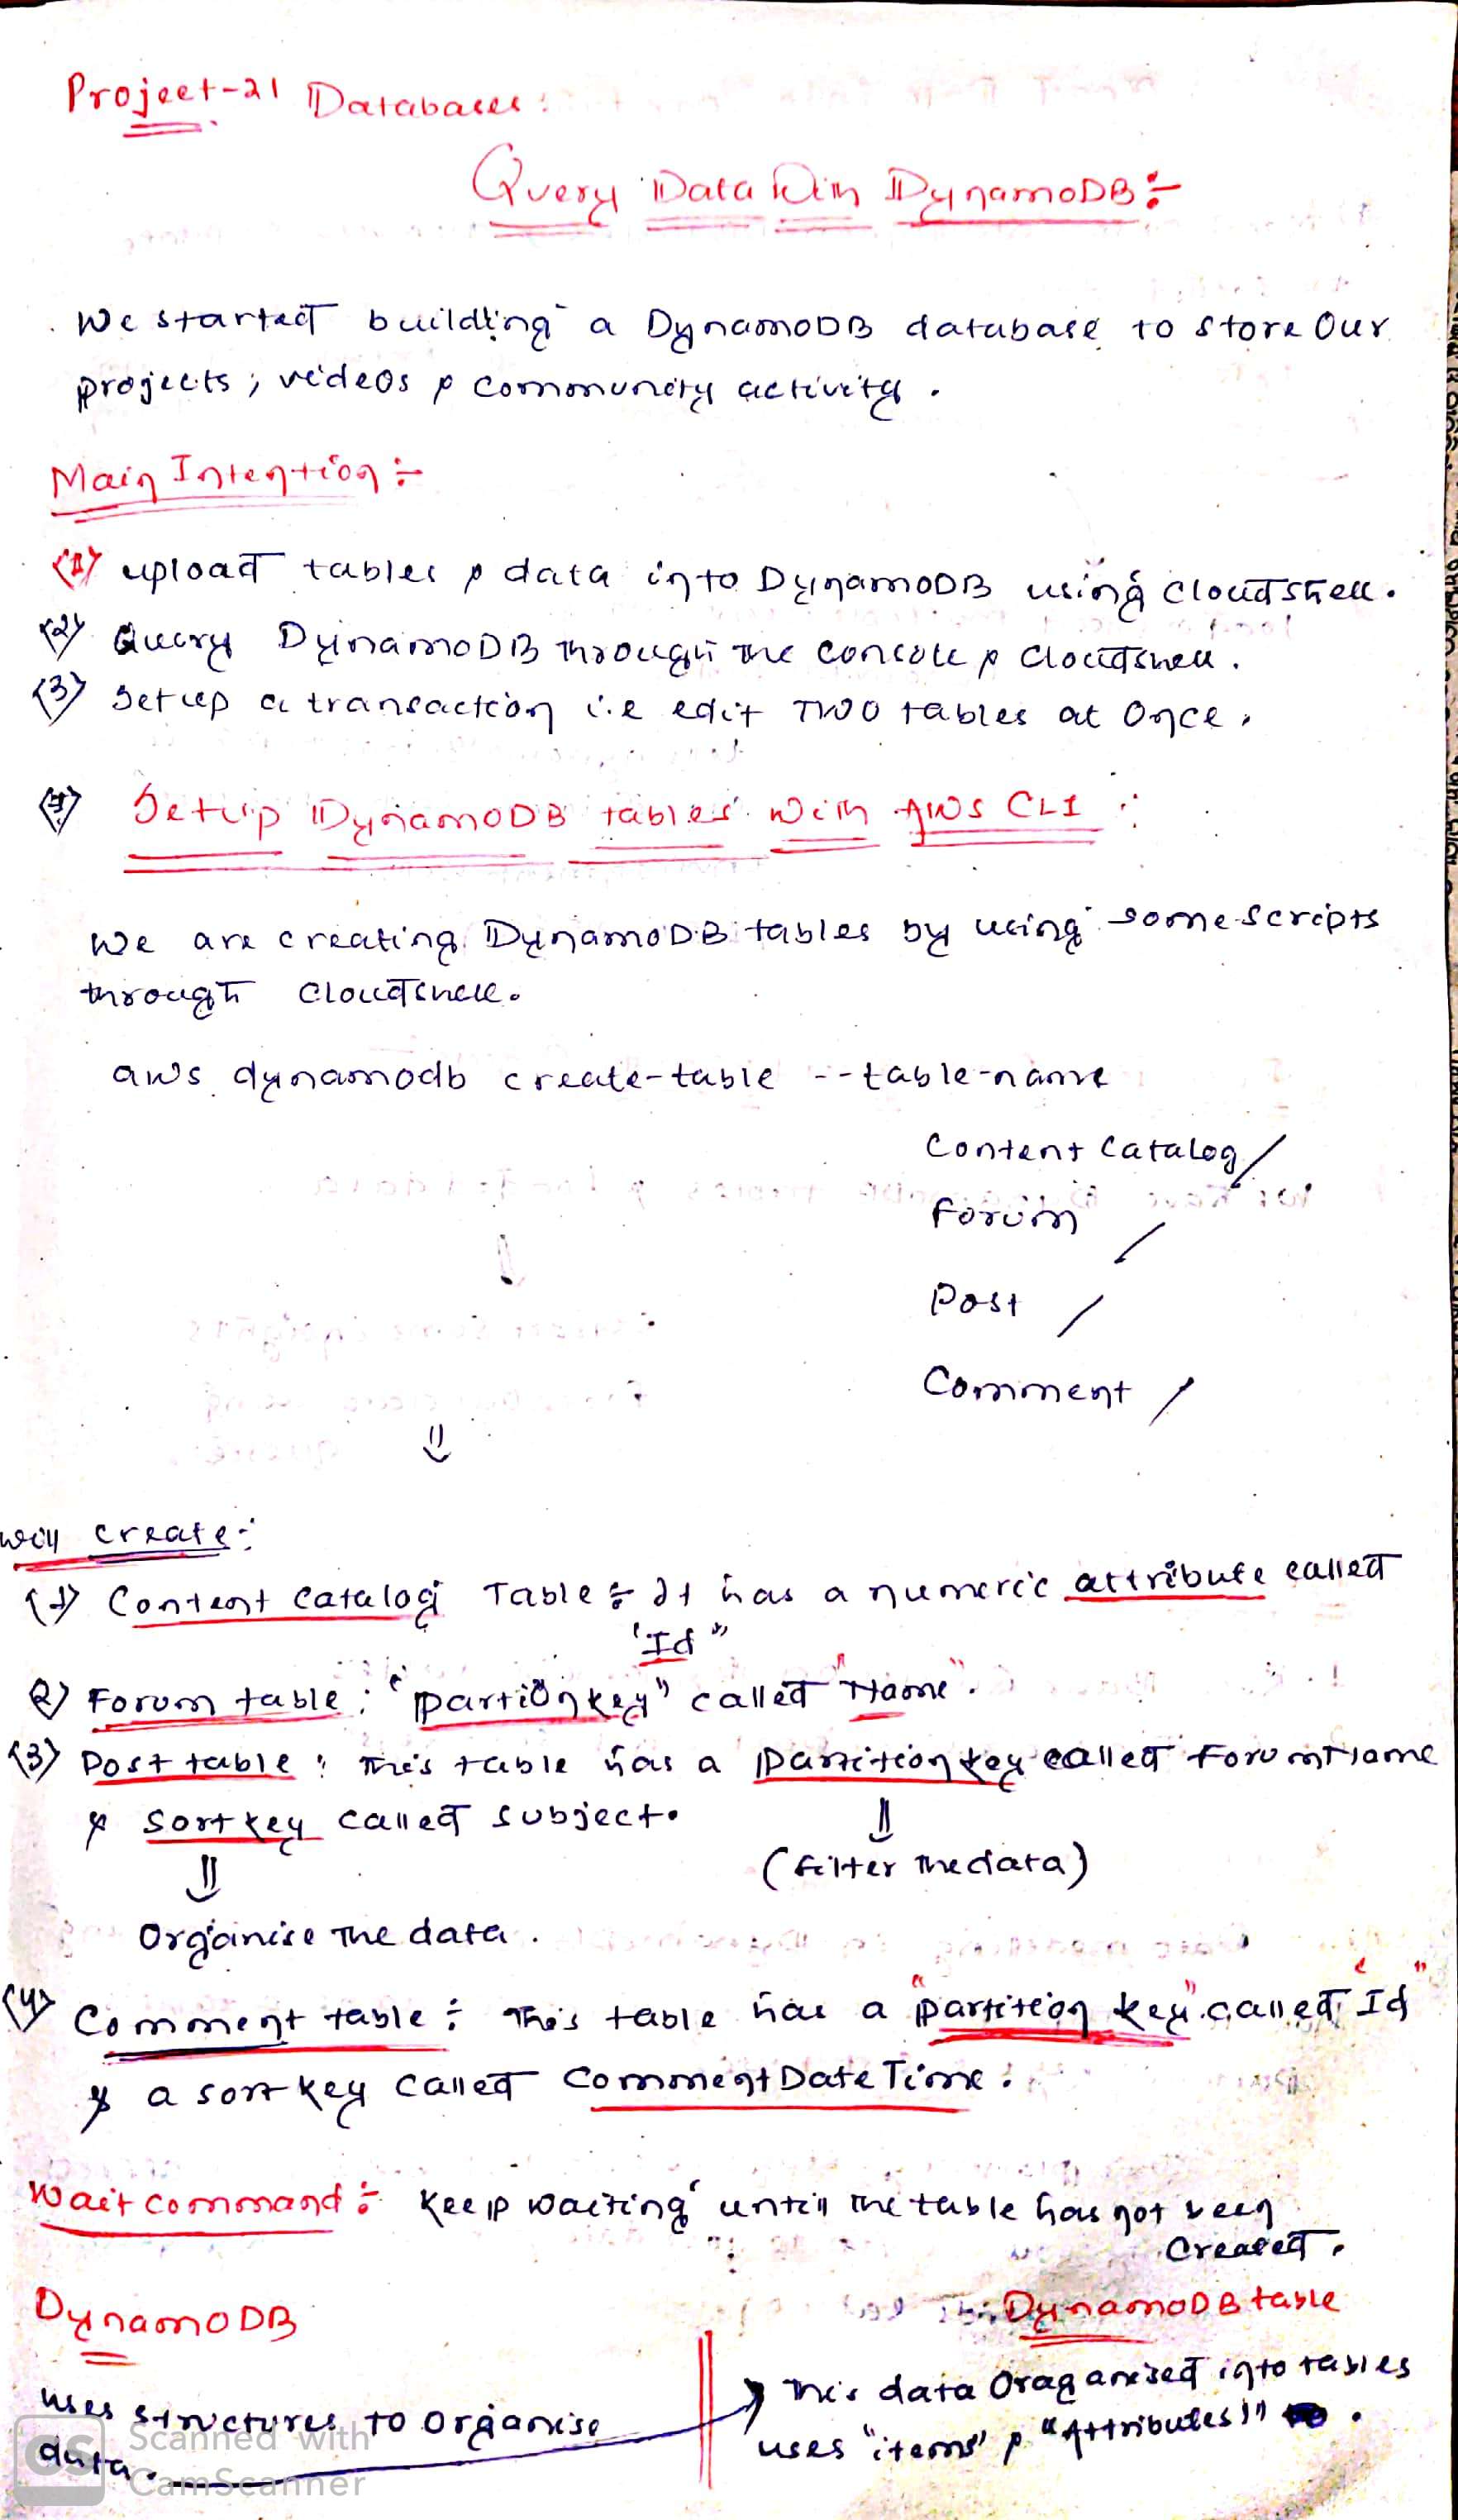 Project-21 Databases:
Query Data With DynamoDB:-
We started building a DynamoDB database to store Our
projects, videos & community activity.
Main Intention:-
(1) upload tables & data into DynamoDB using cloudshell.
(2) Query DynamoDB through the console & cloudshell.
(3) Setup a transaction i.e edit Two tables at Once.
Setup DynamoDB tables With AWS CLI :
We are creating DynamoDB tables by using some scripts
through cloudshell.
aws dynamodb create-table --table-name
Content Catalog /
Forum /
Post /
Comment /
⇓
will create:-
(1) Content Catalog Table:- It has a numeric attribute called
'Id"
2) Forum table: "partionkey" called "Name".
(3) Post table: This table has a Partition key called ForumName
& Sort key called subject.
⇓ ⇓
(Filter the data)
Organise The data.
(4) Comment table:- This table has a "partition key" called "Id"
& a sort key called CommentDateTime.
Wait command:- Keep waiting until the table has not been
Created.
DynamoDB
DynamoDB table
uses structures to Organise
data.
→ This data Oraganised into tables
uses "items" & "Attributes".
Scanned with
CS CamScanner